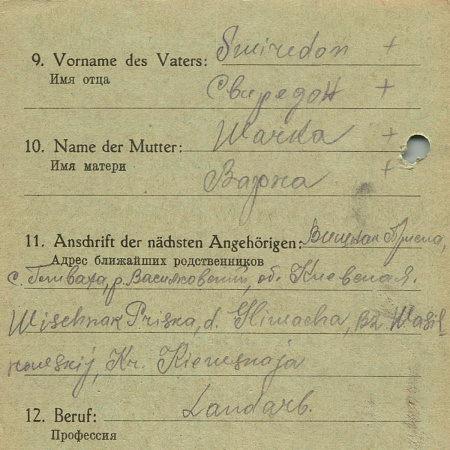 9. Vorname des Vaters: Swiredon +
Имя отца
Свиредон +
10. Name der Mutter: Warka +
Имя матери
Варка +
11. Anschrift der nächsten Angehörigen: Вишняк Приска,
Адрес ближайших родственников
с. р. Васильковский, об. Киевская.
Wischnak Priska, d. Hliwacha, Bz. Wasil
kowskij, Kr. Kiewskaja
12. Beruf: Landarb.
Профессия